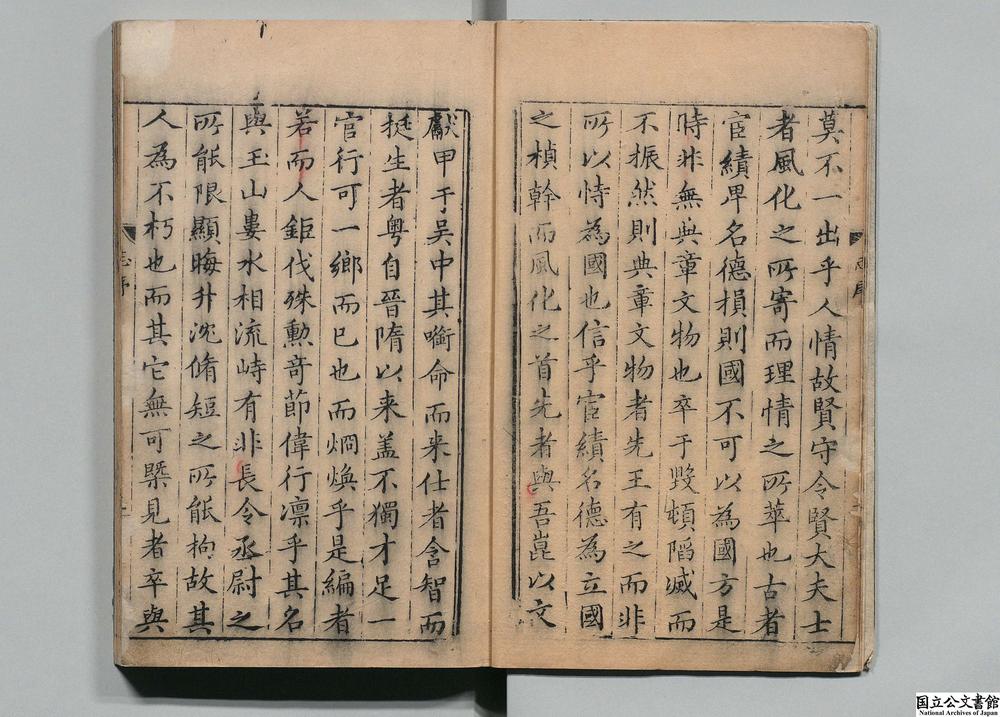 莫不一出乎人情故賢守令賢大夫士
者風化之所寄而理情之所萃也古者
宦績卑名德損則國不可以為國方是
時非無典章文物也卒于毀頓陷滅而
不振然則典章文物者先王有之而非
所以恃為國也信乎宦績名德為立國
之楨幹而風化之首先者與吾崑以文
獻甲于吳中其銜命而来仕者含智而
挺生者粤自晉隋以来盖不獨才足一
官行可一鄉而已也而烱煥乎是編者
若而人鉅伐殊勳竒節偉行凛乎其名
與玉山婁水相流峙有非長令丞尉之
所能限顯晦升沈脩短之所能拘故其
人為不朽也而其它無可槩見者卒與
志序
国立公文書館
National Archives of Japan